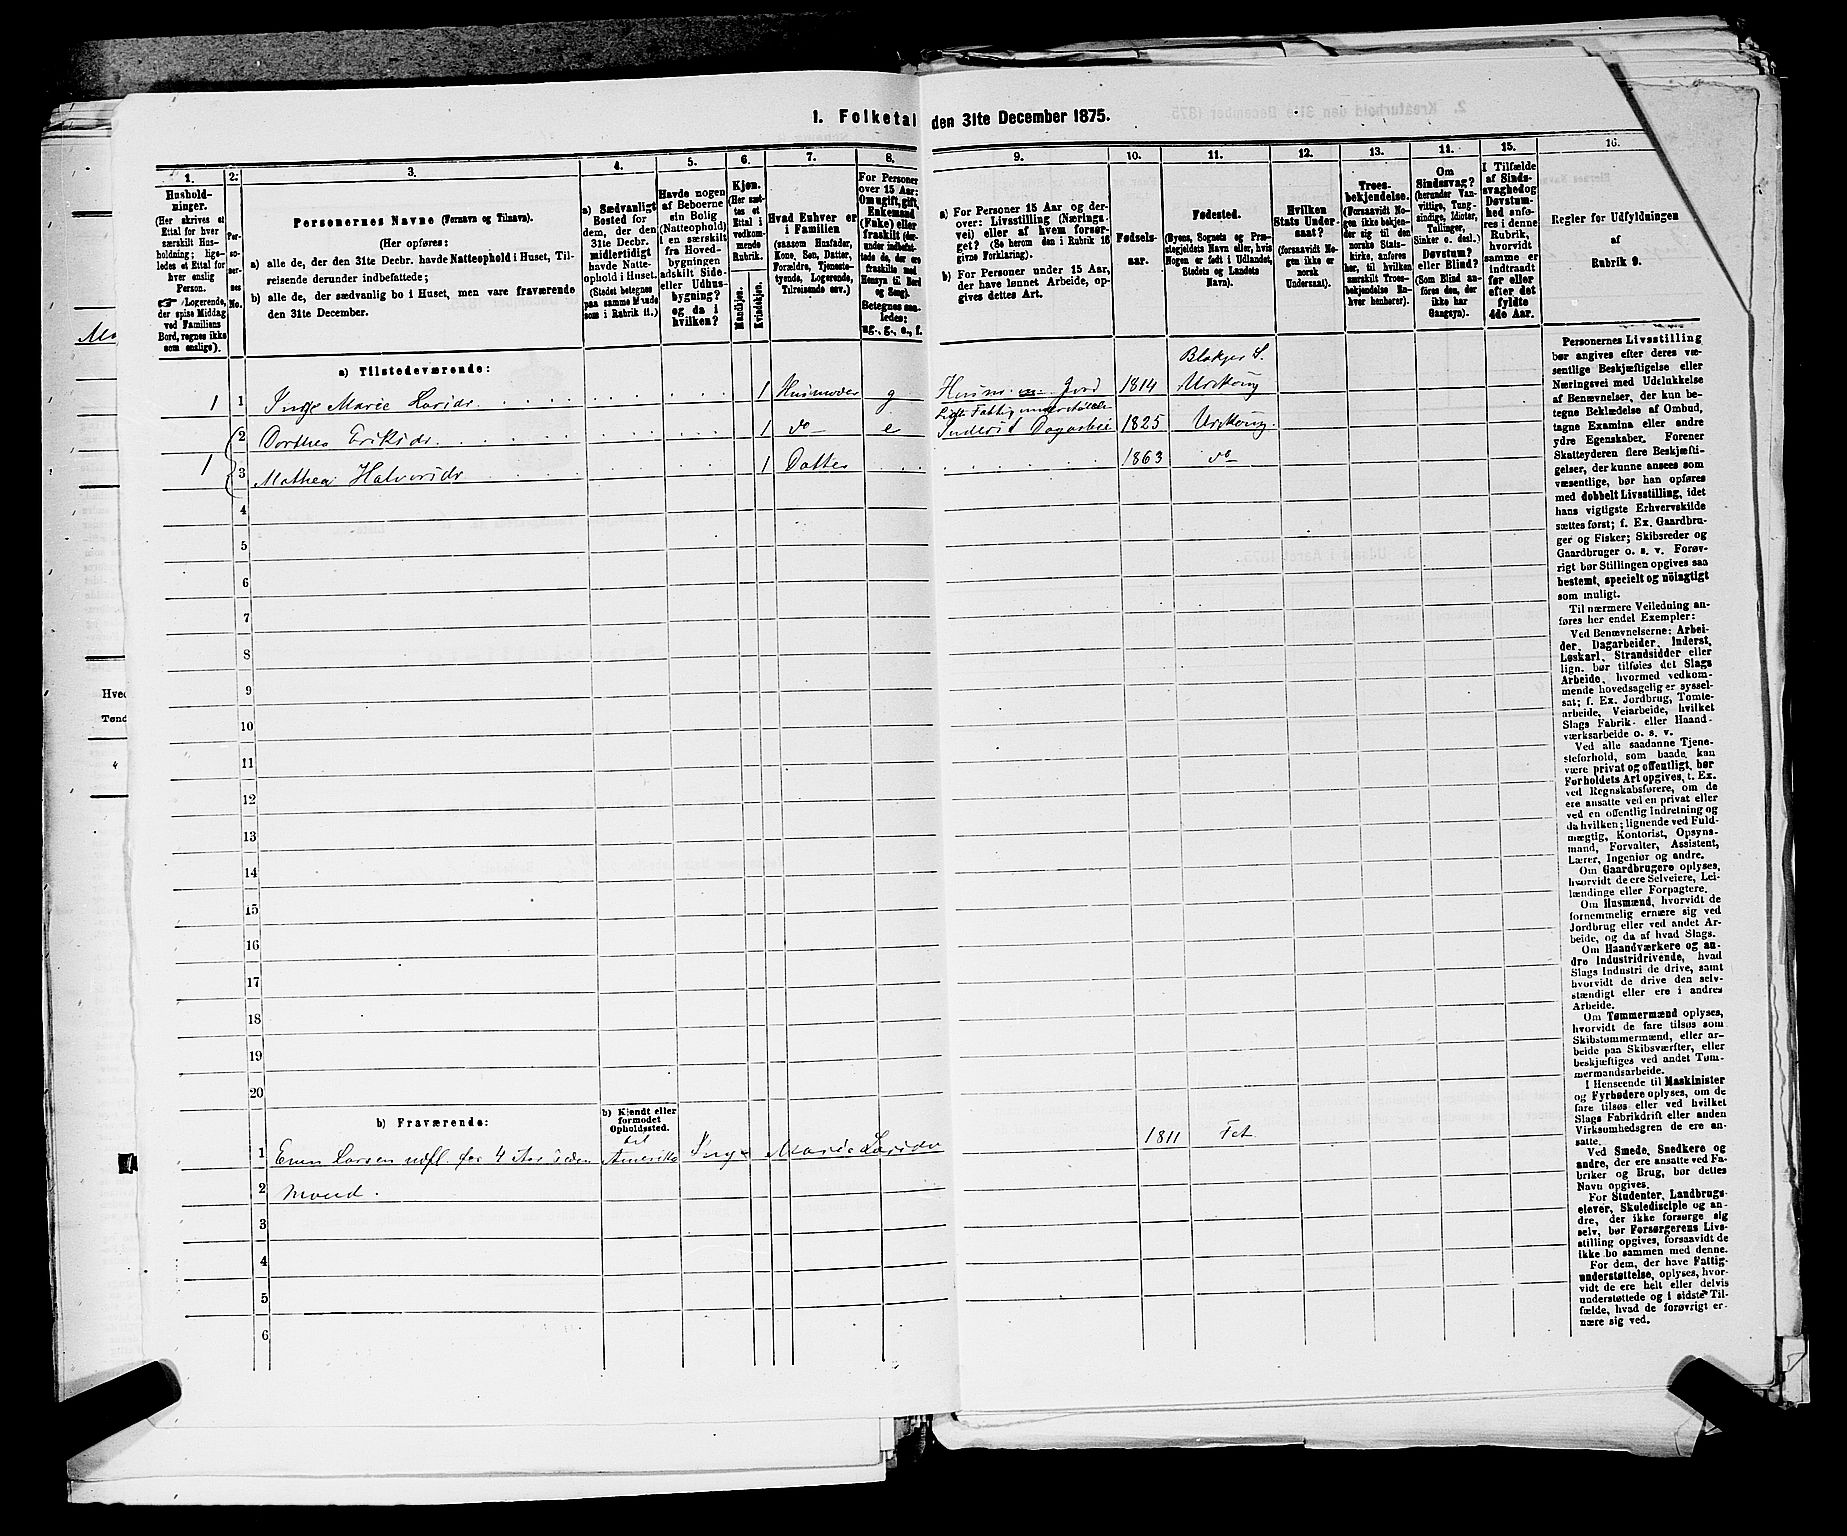 1. Folketal den 31te December 1875.
1. 2. 3. 4. 5. 6. 7. 8. 9. 10. 11. 12. 13. 14. 15. 16.
Husholdninger.
(Her skrives et
Ettal for hver
særskilt Husholdning;
ligeledes et Ettal for
hver enslig
Person.
Logerende,
der spise Middag
ved Familiens
Bord, regnes ikke
som enslige).
Personernes No.
Personernes Navne (Fornavn og Tilnavn).
(Her opføres:
a) alle de, der den 31te Decbr. havde Natteophold i Huset, Tilreisende derunder indbefattede;
b) alle de, der sædvanlig bo i Huset, men vare fraværende den 31te December.
a) Sædvanligt
Bosted for
dem, der den
31te Decbr.
midlertidigt
havde Natteophold i Huset.
(Stedet betegnes
paa samme Maade
som i Rubrik 11.)
Havde nogen
af Beboerne
ein Bolig
(Natteophold)
i en særskilt
fra Hovedbygningen
adskilt Side-
eller Udhusbygning?
og da i
hvilken?
Kjøn.
(Her sættes et
Ettal i
vedkommende
Rubrik.
Mandkjøn.
Kvindekjøn.
Hvad Enhver er
i Familien
(saasom Husfader,
Kone, Søn, Datter,
Forældre, Tjenestetyende, Logerende,
Tilreisende osv.)
For Personer
over 15 Aar:
Om ugift, gift,
Enkemand
(Enke) eller
fraskilt (derunder indbefattede de, der ere
fraskilte med
Hensyn til Bord
og Seng).
Betegnes saaledes:
ug., g., e., f.
a) For Personer 15 Aar og derover: Livsstilling (Næringsvei) eller af hvem forsørget? (Se herom den i Rubrik 16
givne Forklaring).
b) For Personer under 15 Aar,
der have lønnet Arbeide, opgives dettes Art.
Fødselsaar.
Fødested.
(Byens, Sognets og Præstegjeldets Navn eller, hvis
Nogen er født i Udlandet,
Stedets og Landets
Navn).
Hvilken
Stats Undersaat?
(forsaavidt Nogen ikke er
norsk
Undersaat).
Troesbekjendelse.
(Forsaavidt Nogen ikke bekjender sig til den
norske Statskirke, anføres
her, til hvilken
særskilt Troesbekjendelse Enhver henhører).
Om
Sindssvag?
(herunder Vanvittige, Tungsindige, Idioter,
Tullinger,
Sinker o. desl.)
Døvstum?
eller Blind?
(Som Blind anføres den, der
ikke har
Gangsyn).
I Tilfælde
af Sindssvaghed og
Døvstumhed anføres i denne
Rubrik,
hvorvidt
samme er
indtraadt
før eller
efter det
fyldte
4de Aar.
Regler for Udfyldningen
af
Rubrik 9.
a) Tilstedeværende:
1 1 Inge Marie Larsdr. 1 Husmoder g 1814 Blakjer S. Urskoug
Lidt Fattigunderstøttelse
2 Dorthea Eriksdr. 1 do e Inderst Dagarbei 1825 Urskoug
1 3 Mathea Halvorsdr 1 Datter 1863 do
4
5
6
7
8
9
10
11
12
13
14
15
16
17
18
19
20
b) Fraværende:
b) Kjendt eller
formodet
Opholdssted.
1 Even Larsen udfl for 4 Aar siden til Amerika Inge Marie Larsdr 1811 Fet
2 Mand.
3
4
5
6
Personernes Livsstilling
bør angives efter deres væsentlige Beskjæftigelse eller
Næringsvei med Udelukkelse
af Benævnelser, der kun betegne Beklædelse af Ombud,
tagne Examina eller andre
ydre Egenskaber. Forener
Skatteyderen flere Beskjæftigelser, der kunne ansees som
væsentlige, bør han opføres
med dobbelt Livsstilling, idet
hans vigtigste Erhvervskilde
sættes først; f. Ex. Gaardbruger og Fisker; Skibsreder og
Gaardbruger o. s. v. Forøvrigt bør Stillingen opgives saa
bestemt, specielt og nöiagtigt
som muligt.
Til nærmere Veiledning anføres her endel Exempler:
Ved Benævnelserne: Arbeider, Dagarbeider, Inderst,
Løskarl, Strandsidder eller
lign. bør tilføies det Slags
Arbeide, hvormed vedkommende hovedsagelig er sysselsat; f. Ex. Jordbrug, Tomtearbeide, Veiarbeide, hvilket
Slags Fabrik- eller Haandværksarbeide o. s. v.
Ved alle saadanne Tjenesteforhold, som baade kan
være privat og offentligt, bør
Forholdets Art opgives, t. Ex.
ved Regnskabsførere, om de
ere ansatte ved en privat eller
ved en offentlig Indretning og
da hvilken; lignende ved Fuldmægtig, Kontorist, Opsynsmand, Forvalter, Assistent,
Lærer, Ingeniør og andre.
Om Gaardbrugere oplyses,
hvorvidt de ere Selveiere, Leilændinge eller Forpagtere.
Om Husmænd, hvorvidt de
fornemmelig ernære sig ved
Jordbrug eller ved andet Arbeide, og da af hvad Slags.
Om Haandværkere og andre Industridrivende, hvad
Slags Industri de drive, samt
hvorvidt de drive den selvstændigt eller ere i andres
Arbeide.
Om Tømmermænd oplyses,
hvorvidt de fare tilsøs som
Skibstømmermænd, eller arbeide paa Skibsværfter, eller
beskjæftiges ved andet Tømmermandsarbeide.
I Henseende til Maskinister
og Fyrbødere oplyses, om de
fare tilsøs eller ved hvilket
Slags Fabrikdrift eller anden
Virksomhedsgren de ere ansatte.
Ved Smede, Snedkere og
andre, der ere ansatte ved Fabriker og Brug, bør dettes
Navn opgives.
For Studenter, Landbrugselever, Skoledisciple og andre, der ikke forsørge sig
selv, bør Forsørgerens Livsstilling opgives, forsaavidt de
ikke bo sammen med denne.
For dem, der have Fattigunderstøttelse, oplyses, hvorvidt de ere helt eller delvis
understøttede og i sidste Tilfælde, hvad de forøvrigt ernære sig ved.